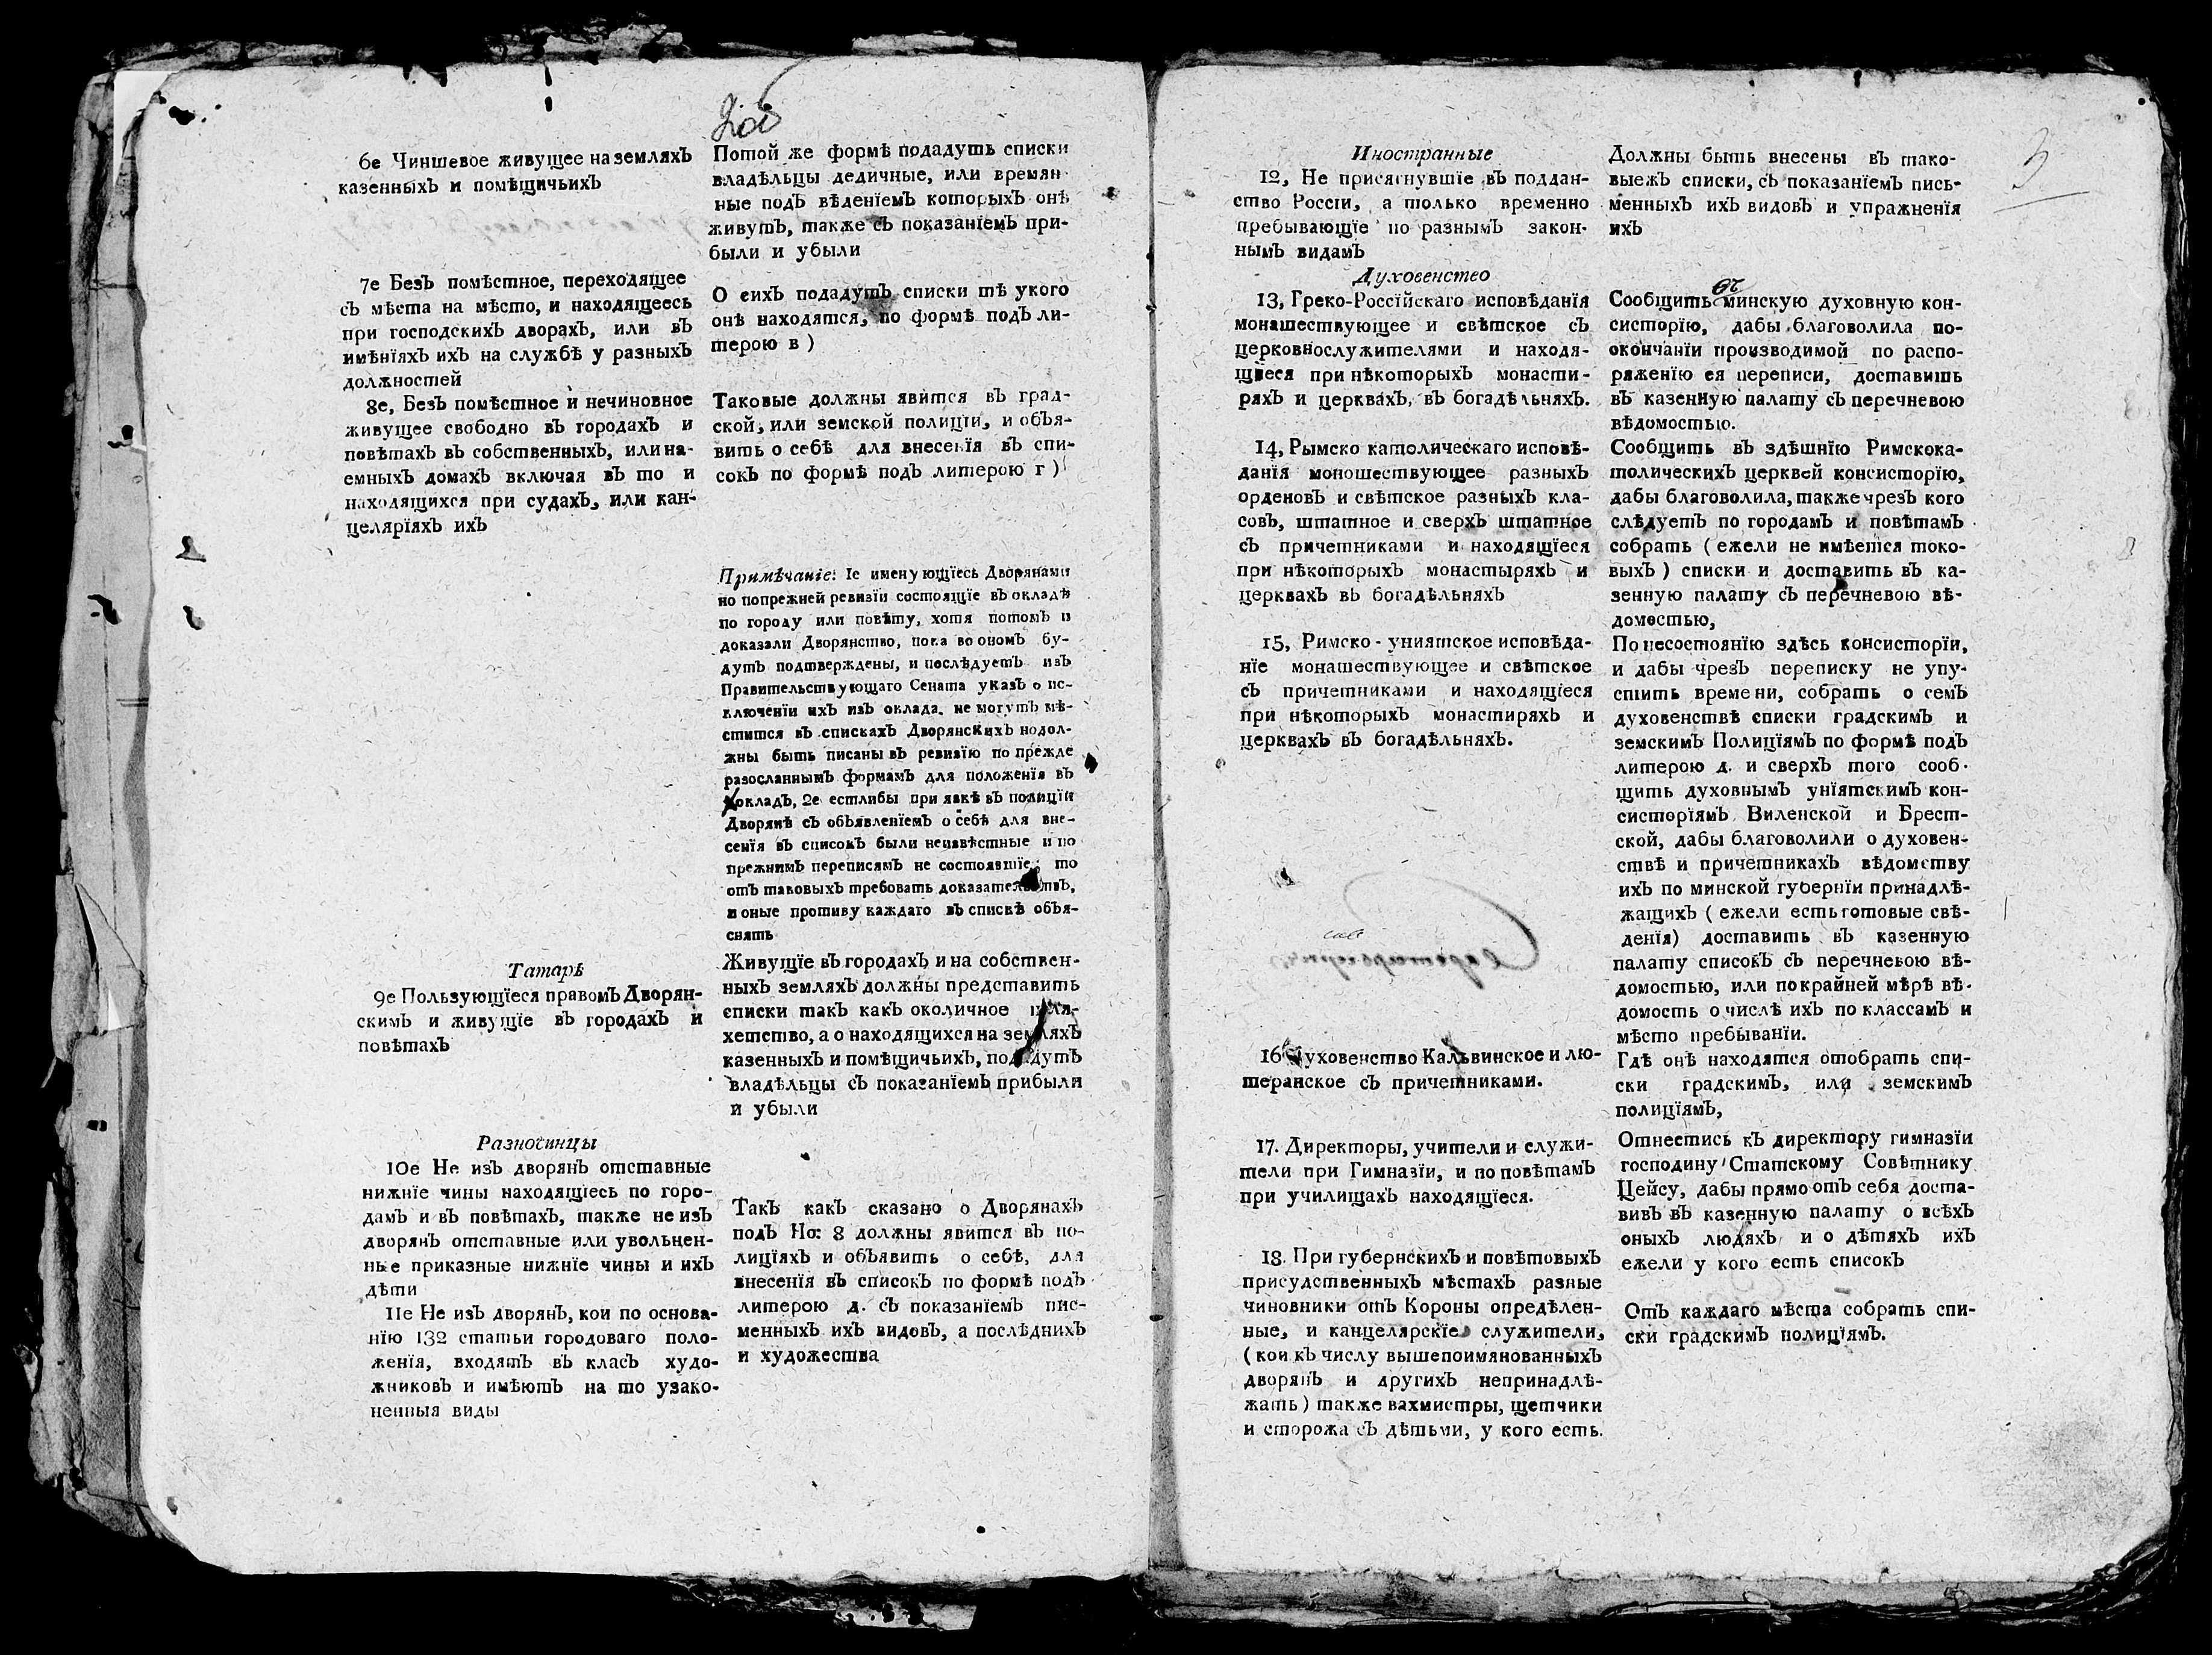 6е Чиншевое живущее на земляхЪ
казенныхЪ и помѣщичьихЪ
Потой же формѣ подадутъ списки
владѣльцы дедичные, или времян-
ные подЪ вѣденїемЪ которыхЪ онѣ
живутЪ, также сЪ показанїемЪ при-
были и убыли
7е БезЪ помѣстное, переходящее
сЪ мѣста на мѣсто, и находящееесь
при господскихЪ дворахЪ, или вЪ
имѣнїяхЪ ихЪ на службѣ у разныхЪ
должностей
О сихЪ подадутЪ списки тѣ укого
онѣ находятся, по формѣ подЪ ли-
терою в )
8е, БезЪ помѣстное и нечиновное
живущее свободно вЪ городахЪ и
повѣтахЪ вЪ собственныхЪ, или на-
емныхЪ домахЪ включая вЪ то и
находящихся при судахЪ, или кан-
целярїяхЪ ихЪ
Таковые должны явится вЪ град-
ской, или земской полиціи, и объя-
вить о себѣ для внесенїя вЪ спи-
сокЪ по формѣ подЪ литерою г )
Примѣчаніе: 1е именующїесь Дворянами
но попрежней ревизїи состоящїе вЪ окладѣ
по городу или повѣту, хотя потомЪ и
доказали Дворянство, пока во ономЪ бу-
дутЪ подтверждены, и послѣдуетЪ изЪ
Правительствующаго Сената указЪ о ис-
ключенїи ихЪ изЪ оклада, не могутЪ мѣ-
стится вЪ спискахЪ ДворянскихЪ но дол-
жны быть писаны вЪ ревизїю по прежде
разосланнымЪ формамЪ для положенїя вЪ
окладЪ, 2е естлибы при явкѣ вЪ полицїи
Дворянѣ сЪ объявленїемЪ о себѣ для вне-
сенїя вЪ списокЪ были неизвѣстные и по
прежнимЪ переписямЪ не состоявшїе; то
отЪ таковыхЪ требовать доказательствЪ,
и оные противу каждаго вЪ спискѣ объя-
снять
Татарѣ
9е Пользующїеся правомЪ Дворян-
скимЪ и живущїе вЪ городахЪ и
повѣтахЪ
Живущїе вЪ городахЪ и на собствен-
ныхЪ земляхЪ должны представить
списки такЪ какЪ околичное шля-
хетство, а о находящихся на земляхЪ
казенныхЪ и помѣщичьихЪ, подадутЪ
владѣльцы сЪ показанїемЪ прибыли
и убыли
Разночинцы
10е Не изЪ дворянЪ отставные
нижнїе чины находящїесь по горо-
дамЪ и вЪ повѣтахЪ, также не изЪ
дворянЪ отставные или увольнен-
ные приказные нижнїе чины и ихЪ
дѣти
11е Не изЪ дворянЪ, кои по основа-
нїю 132 статьи городоваго поло-
женїя, входятЪ вЪ класЪ худо-
жниковЪ и имѣютЪ на то узако-
ненныя виды
ТакЪ какЪ сказано о ДворянахЪ
подЪ Но: 8 должны явится вЪ по-
лицїяхЪ и объявить о себѣ, для
внесенїя вЪ списокЪ по формѣ подЪ
литерою д. сЪ показанїемЪ пис-
менныхЪ ихЪ видовЪ, а послѣднихЪ
и художества
3
Иностранные
12, Не присягнувшїе вЪ поддан-
ство Россїи, а только временно
пребывающїе по разнымЪ закон-
нымЪ видамЪ
Должны быть внесены вЪ тако-
выежЪ списки, сЪ показанїемЪ пись-
менныхЪ ихЪ видовЪ и упражненїя
ихЪ
Духовенство
13, Греко-Россїйскаго исповѣданїя
монашествующее и свѣтское сЪ
церковнослужителями и находя-
щїеся при нѣкоторыхЪ монасти-
ряхЪ и церквахЪ, вЪ богадѣльняхЪ.
въ
Сообщить минскую духовную кон-
систорїю, дабы благоволила по-
окончанїи производимой по распо-
ряженїю ея переписи, доставить
вЪ казенную палату сЪ перечневою
вѣдомостью.
14, Рымско католическаго исповѣ-
данїя моношествующее разныхЪ
орденовЪ и свѣтское разныхЪ кла-
совЪ, штатное и сверхЪ штатное
сЪ причетниками и находящїеся
при нѣкоторыхЪ монастыряхЪ и
церквахЪ вЪ богадѣльняхЪ
Сообщить вЪ здѣшнїю Римскока-
толическихЪ церквей консисторїю,
дабы благоволила, также чрезЪ кого
слѣдуетЪ по городамЪ и повѣтамЪ
собрать ( ежели не имѣется токо-
выхЪ ) списки и доставить вЪ ка-
зенную палату сЪ перечневою вѣ-
домостью,
15, Римско - униятское исповѣда-
нїе монашествующее и свѣтское
сЪ причетниками и находящїеся
при нѣкоторыхЪ монастиряхЪ и
церквахЪ вЪ богадѣльняхЪ.
По несостоянїю здѣсь консисторїи,
и дабы чрезЪ переписку не упу-
стить времени, собрать о семЪ
духовенствѣ списки градскимЪ и
земскимЪ ПолицїямЪ по формѣ подЪ
литерою д. и сверхЪ того сооб-
щить духовнымЪ унїятскимЪ кон-
систорїямЪ Виленской и Брест-
ской, дабы благоволили о духовен-
ствѣ и причетникахЪ вѣдомству
ихЪ по минской губернїи принадлѣ-
жащихЪ ( ежели есть готовые свѣ-
денїя) доставить вЪ казенную
палату списокЪ сЪ перечневою вѣ-
домостью, или по крайней мѣрѣ вѣ-
домость о числѣ ихЪ по классамЪ и
мѣсто пребыванїи.
16 Духовенство Кальвинское и лю-
теранское сЪ причетниками.
Гдѣ онѣ находятся отобрать спи-
ски градскимЪ, или земскимЪ
полицїямЪ,
17. Директоры, учители и служи-
тели при Гимназїи, и по повѣтамЪ
при училищахЪ находящїеся.
Отнестись кЪ директору гимназїи
господину Статскому Совѣтнику
Цейсу, дабы прямо отЪ себя доста-
вивЪ вЪ казенную палату о всѣхЪ
оныхЪ людяхЪ и о дѣтяхЪ ихЪ
ежели у кого есть списокЪ
18. При губернскихЪ и повѣтовыхЪ
присудственныхЪ мѣстахЪ разные
чиновники отЪ Короны опредѣлен-
ные, и канцелярскїе служители,
( кои кЪ числу вышепоимянованныхЪ
дворянЪ и другихЪ непринадлѣ-
жать ) также вахмистры, щетчики
и сторожа сЪ дѣтьми, у кого есть.
ОтЪ каждаго мѣста собрать спи-
ски градскимЪ полицїямЪ.